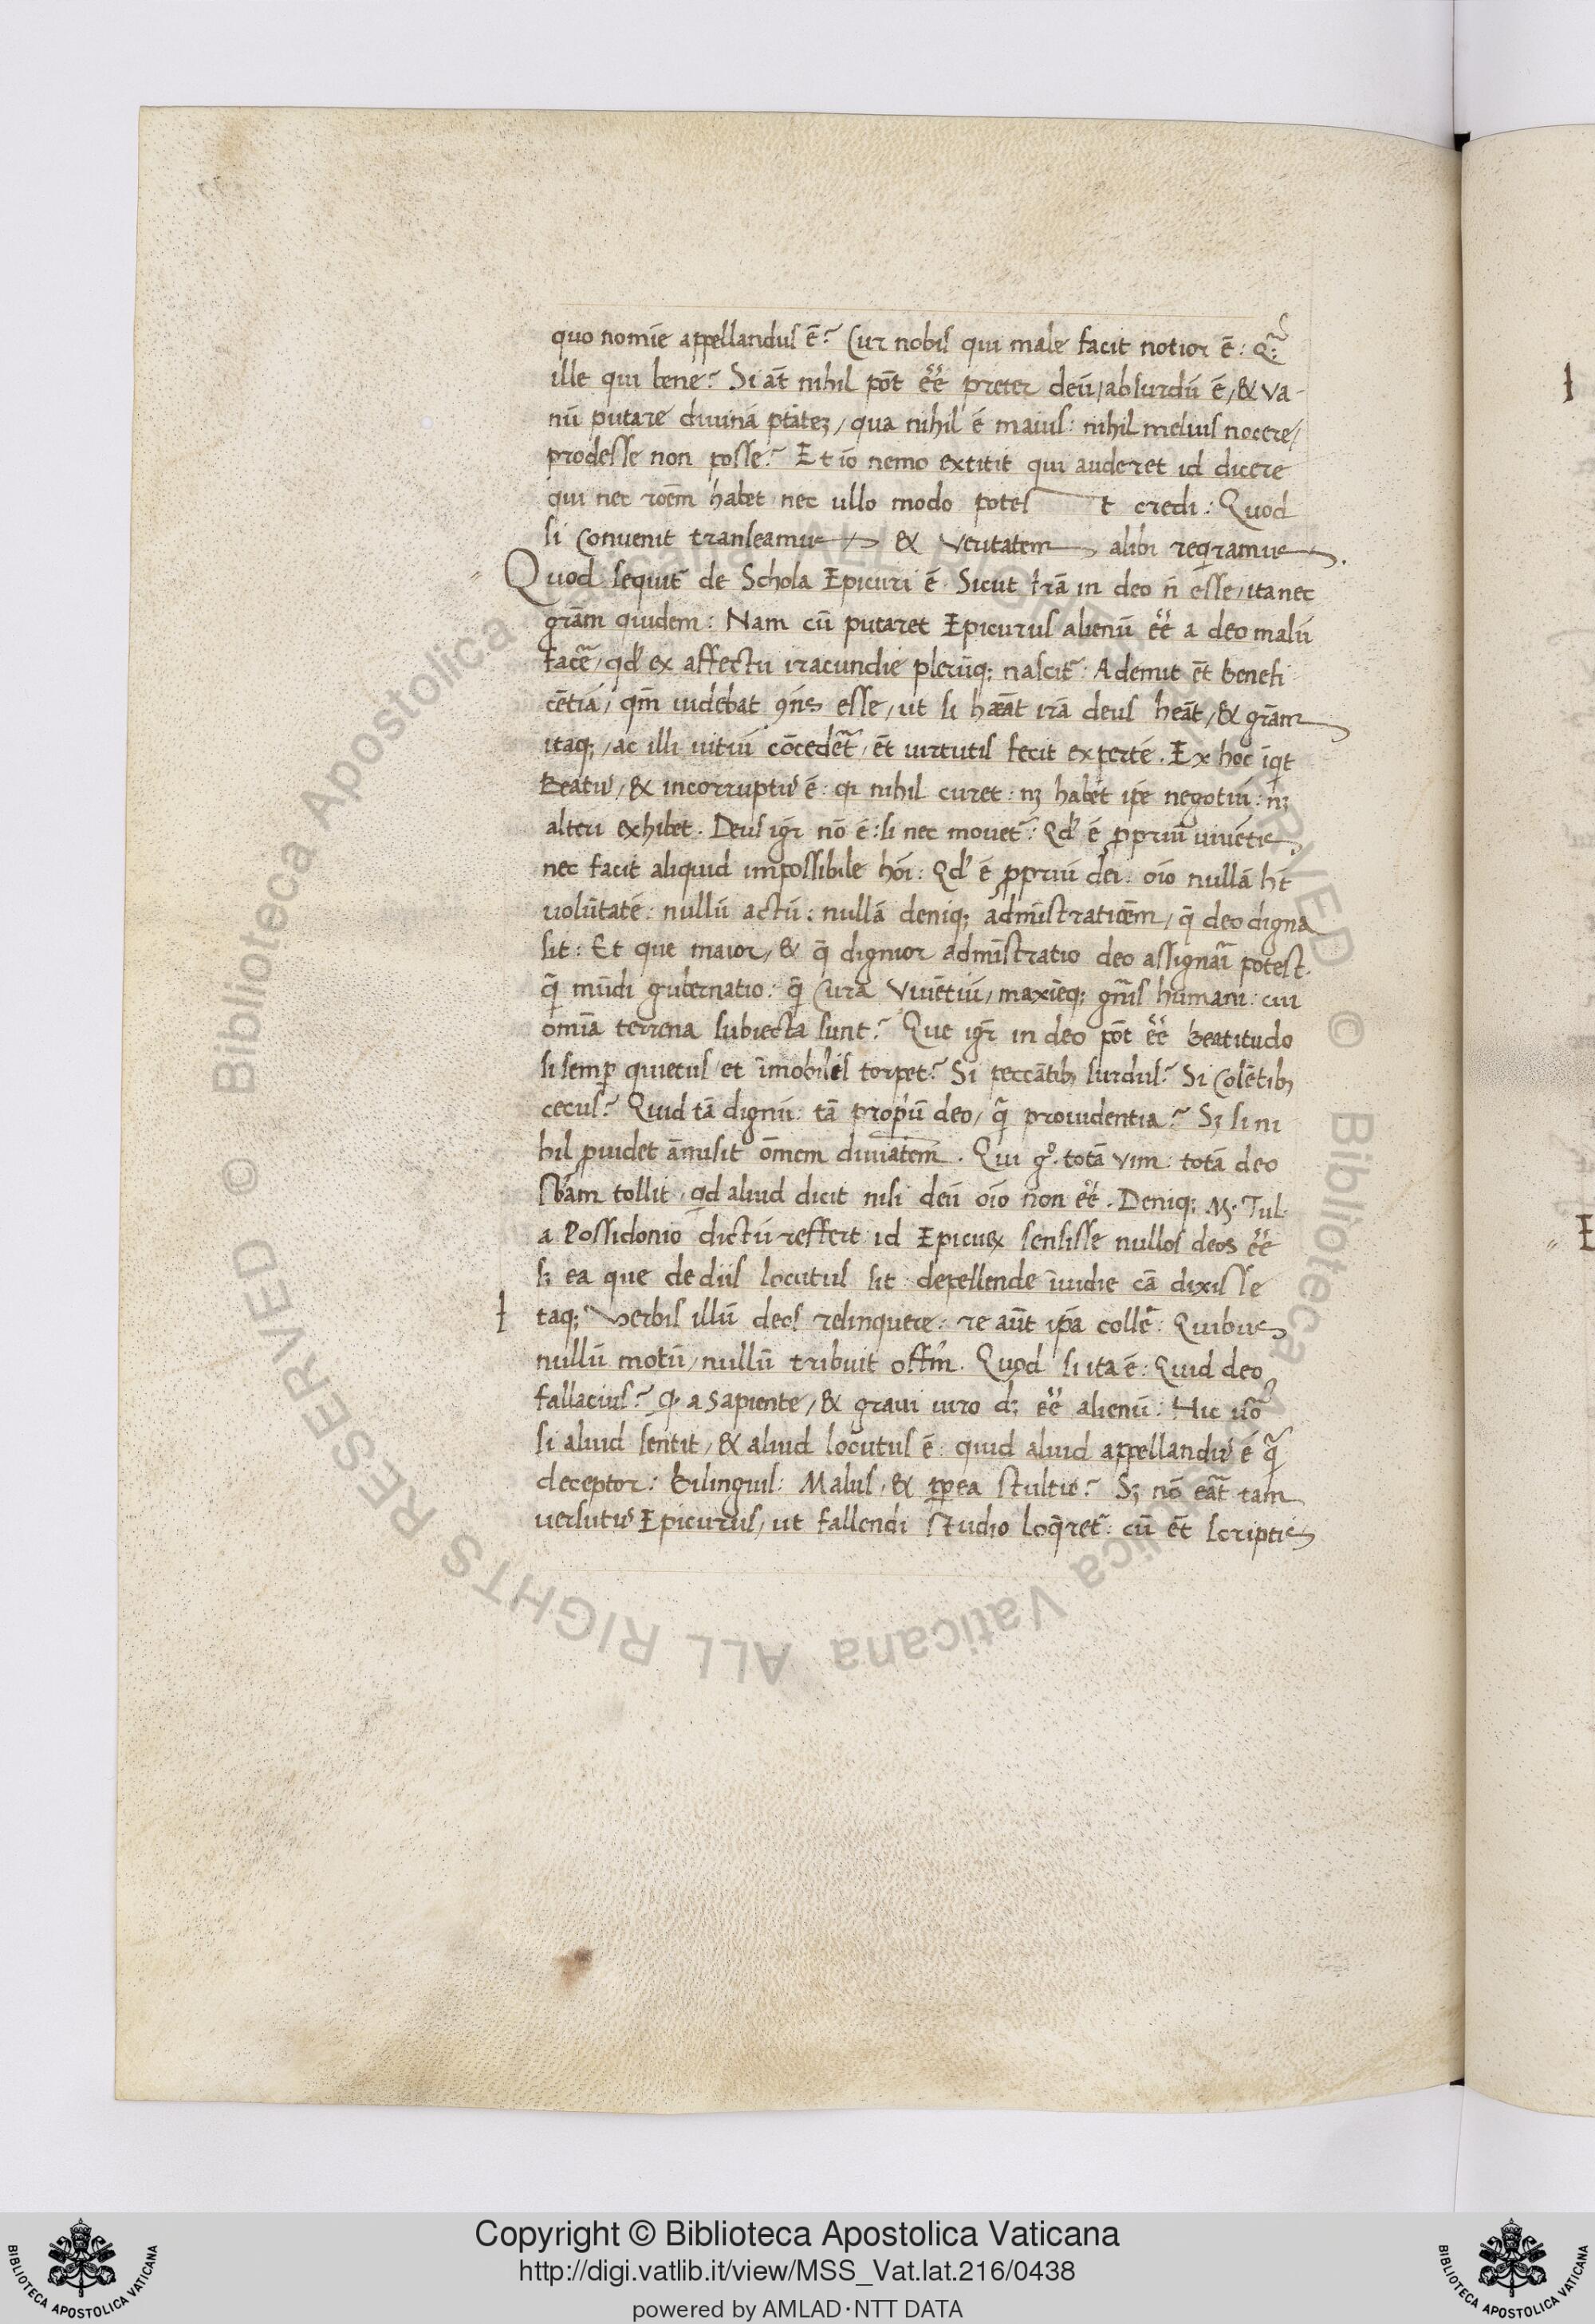 quo nomīe appellandus ē? Cur nobis qui male facit notior ē: q̄;
ille qui bene? Si āt nihil pōt ēē preter deū/absurdū ē/& va-
nū putare diuinā ptātez/qua nihil ē maius: nihil melius nocere/
prodesse non posse? Et iō nemo extitit qui auderet id dicere
qui nec rōem habet nec ullo modo potest credi: Quod
si conuenit transeamus/ & veritatem alibi reqramus.
Quod sequit̄ de Schola Epicuri ē. Sicut Irā in deo n̄ esse/ita nec
grām quidem: Nam cū putaret Epicurus alienū ēē a deo malū
facē/qd ex affectu iracundie plerūq; nascit̄: Ademit ēt benefi
cētiā/qm̄ uidebat 9ns̄ esse/ut si hæāt irā deus heāt/& grām
itaq;/ac illi uitiū cōcedēt/ēt uirtutis fecit expertē. Ex hoc iq̄t
Beatus/& incorruptus ē: qr nihil curet: nz habet ip̄e negotiū: nz
alteri exhibet. Deus igr̄ nō ē: si nec mouet̄? Qd ē ꝓpriū uiuētis
nec facit aliquid impossibile hōi: Qd ē ꝓpriū dei: oīo nullā ht̄
uolūtatē: nullū actū: nullā deniq; admīstratiōem/q̄ deo digna
sit: Et que maior/& q̄ dignior admīstratio deo assignari potest.
q̄ mūdi gubernatio: q̄ cura Viuētiū/maxīeq; gnīs humani: cui
omīa terrena subiecta sunt? Que igr̄ in deo pōt ēē beatitudo
si semp̄ quietus/et īmobilis torpet? Si peccātibz surdus? Si Colētibz
cecus? Quid tā dignū: tā propiū deo/q̄ prouidentia? Sz si ni
hil ꝓuidet āmisit ōmem diuīatem. Qui g°. totā vim: totā deo
sbām tollit/qd aliud dicit nisi deū oīo non ēē. Deniq; M. Tul.
a Possidonio dictū reffert id Epicuꝝ sensisse nullos deos ēē
sz ea que de diis locutus sit: depellende īuidie cā dixisse
I taq; Verbis illū deos relinquere: re aūt ipā tollē: Quibus
nullū motū/nullū tribuit offm̄. Quod si ita ē: Quid deo
fallacius? q. a sapiente/& graui uiro dz ēē alienū: Hic uō
si aliud sentit/& aliud locutus ē: quid aliud appellandus ē q̄
deceptor: Bilinguis: Malus/& ꝓp̄ea stultus? Sz nō eāt tam
uersutus Epicurus/ut fallendi studio loqret̄: cū ēt scriptis
Copyright © Biblioteca Apostolica Vaticana
http://digi.vatlib.it/view/MSS_Vat.lat.216/0438
powered by AMLAD·NTT DATA